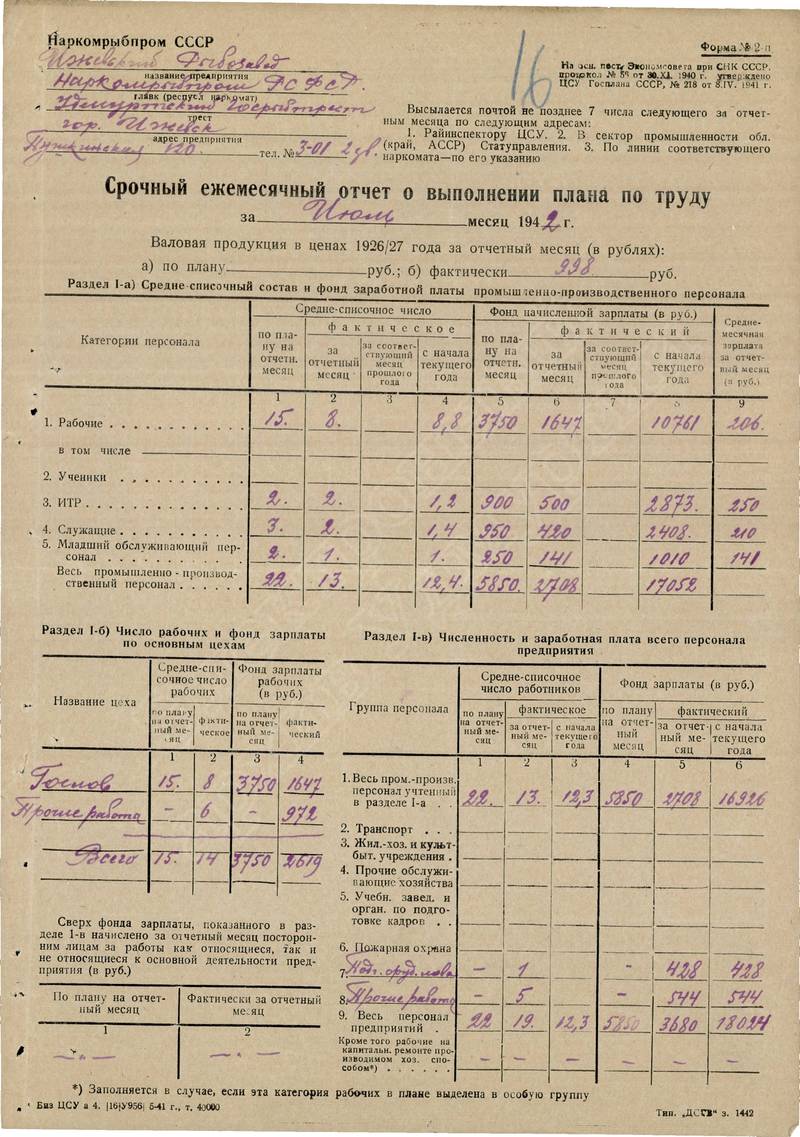 Наркомрыбпром СССР
Ижевский Рыбозавод
название предприятия
Наркомрыбпром РСФСР
главк (республ наркомат)
Удмуртский Госрыбтрест
трест
гор. Ижевск
адрес предприятия
Пушкинская 170. тел. № 3-01 2 зв.
16
Форма № 2-п
На осн. пост. Экономсовета при СНК СССР.
протокол № 58 от 30.XI. 1940 г. утверждено
ЦСУ Госплана СССР, № 218 от 8.IV. 1941 г.
Высылается почтой не позднее 7 числа следующего за отчет-
ным месяца по следующим адресам:
1. Райинспектору ЦСУ. 2. В сектор промышленности обл.
(край, АССР) Статуправления. 3. По линии соответствующего
наркомата—по его указанию
Срочный ежемесячный отчет о выполнении плана по труду
за Июль месяц 1942 г.
Валовая продукция в ценах 1926/27 года за отчетный месяц (в рублях):
а) по плану руб.; б) фактически 998 руб.
Раздел I-а) Средне-списочный состав и фонд заработной платы промышленно-производственного персонала
Категории персонала
Средне-списочное число
по пла-
ну на
отчетн.
месяц
фактическое
за
отчетный
месяц
за соответ-
ствующий
месяц
прошлого
года
с начала
текущего
года
Фонд начисленной зарплаты (в руб.)
по
плану
на
отчетн.
месяц
фактический
за
отчетный
месяц
за соответ-
ствующий
месяц
прошлого
года
с начала
текущего
года
Средне-
месячная
зарплата
за отчет-
ный месяц
(в руб.)
1 2 3 4 5 6 7 8 9
1. Рабочие 15. 8. 8,8 3750 1647 10761 206.
в том числе
2. Ученики
3. ИТР 2. 2. 1,2 900 500 2873. 250
4. Служащие 3. 2. 1,4 950 420 2408. 210
5. Младший обслуживающий пер-
сонал 2. 1. 1. 250 141 1010 141
Весь промышленно-производ-
ственный персонал 22. 13. 12,4. 5850. 2708 17052
Раздел I-б) Число рабочих и фонд зарплаты
по основным цехам
Название цеха
Средне-спи-
сочное число
рабочих
Фонд зарплаты
рабочих
(в руб.)
по плану
на отчет-
ный ме-
сяц
факти-
ческое
по плану
на отчет-
ный ме-
сяц
факти-
ческий
1 2 3 4
Гослов 15. 8 3750 1647
Прочие работа – 6 – 972
Всего 15. 14 3750 2619
Сверх фонда зарплаты, показанного в раз-
деле 1-в начислено за отчетный месяц посторон-
ним лицам за работы как относящиеся, так и
не относящиеся к основной деятельности пред-
приятия (в руб.)
По плану на отчет-
ный месяц
Фактически за отчетный
месяц
1 2
–"– –"–
Раздел I-в) Численность и заработная плата всего персонала
предприятия
Группа персонала
Средне-списочное
число работников
по плану
на отчет-
ный ме-
сяц
фактическое
за отчет-
ный мес.
с начала
текущего
года
Фонд зарплаты (в руб.)
по плану
на отчет-
ный
месяц
фактический
за отчет-
ный ме-
сяц
с начала
текущего
года
1 2 3 4 5 6
1. Весь пром.-произв.
персонал учтенный
в разделе I-а 22. 13. 12,3 5850 2708 16926
2. Транспорт
3. Жил.-хоз. и культ-
быт. учреждения
4. Прочие обслужи-
вающие хозяйства
5. Учебн. завед. и
орган. по подго-
товке кадров
6. Пожарная охрана
7. Подг. оруд. лова – 1 – 428 428
8. Прочие работа – 5 – 544 544
9. Весь персонал
предприятий 22 19. 12,3 5850 3680 18024
Кроме того рабочие на
капитальн. ремонте про-
изводимом хоз. спо-
собом*) – – – – – –
*) Заполняется в случае, если эта категория рабочих в плане выделена в особую группу
Биз ЦСУ а 4. |16|У956| 5-41 г., т. 40000
Тип. „ДСГВ“ з. 1442